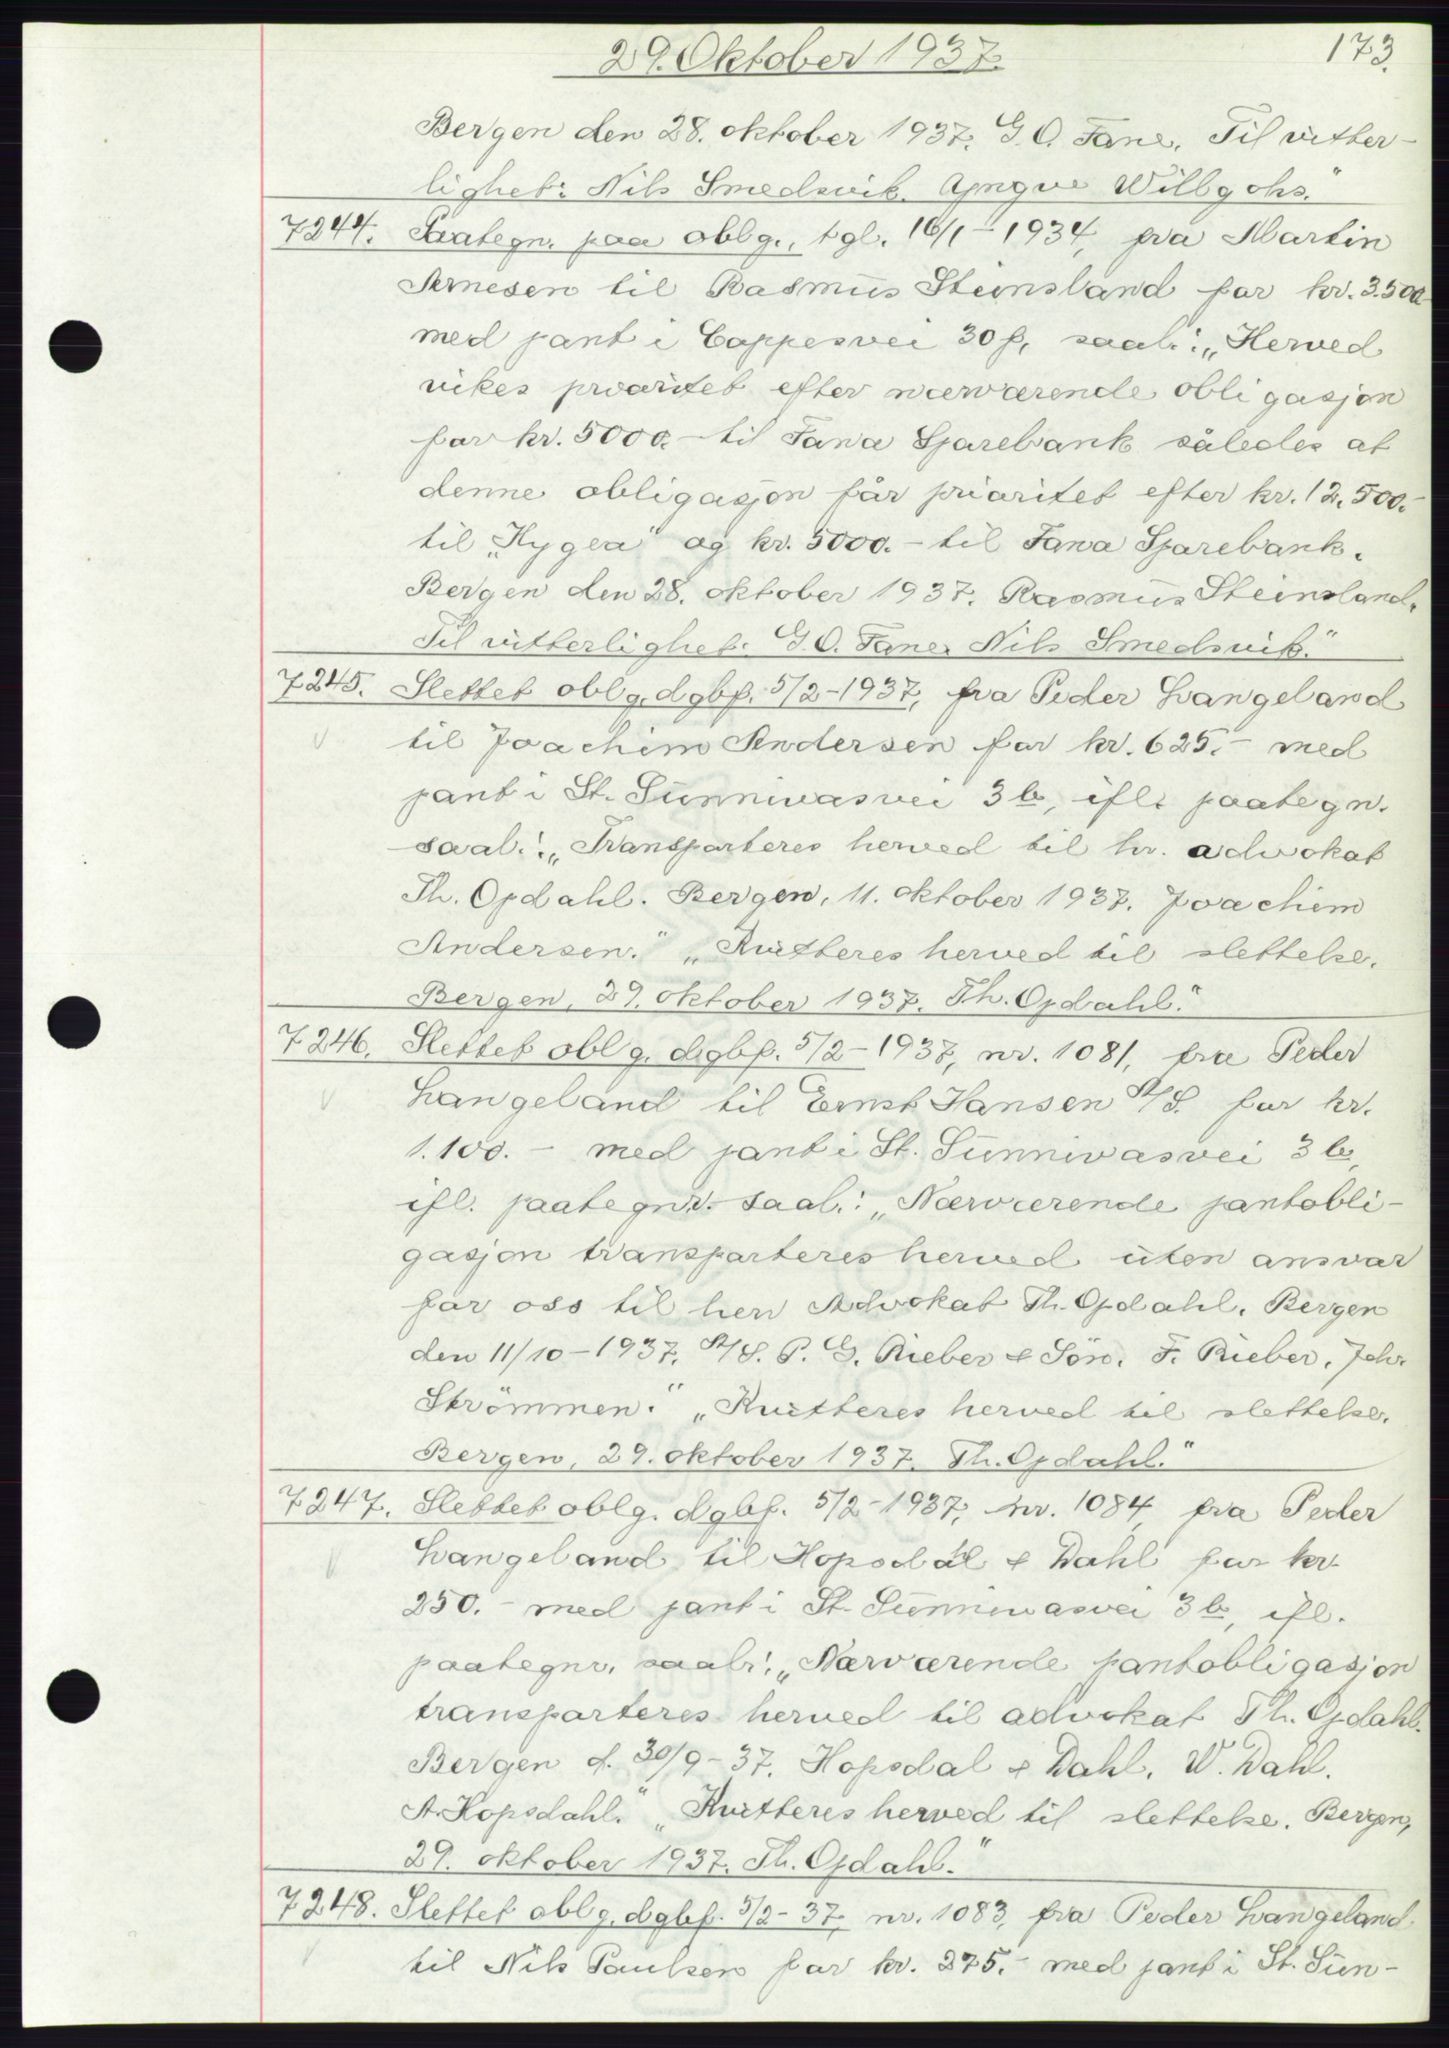 29. Oktober 1937.
173.
Bergen den 28. oktober 1937. G. O. Fane. Til vitter-
lighet: Nils Smedsvik. Yngve Willgohs."
7244. Paategn. paa oblg., tgl. 16/1-1934, fra Martin
Arnesen til Rasmus Steinsland for kr. 3.500.-
med pant i Cappesvei 30 f, saal.: "Herved
vikes prioritet efter nærværende obligasjon
for kr. 5000.- til Fana Sparebank således at
denne obligasjon får prioritet efter kr. 12.500.-
til "Hygea" og kr. 5000.- til Fana Sparebank.
Bergen den 28. oktober 1937. Rasmus Steinsland.
Til vitterlighet: G. O. Fane. Nils Smedsvik."
7245. Slettet oblg. dgbf. 5/2-1937, fra Peder Langeland
til Joachim Andersen for kr. 625.- med
pant i St. Sunnivasvei 3 b, ifl. paategn.
saal.: "Transporteres herved til hr. advokat
Th. Opdahl. Bergen, 11. oktober 1937. Joachim
Andersen." "Kvitteres herved til slettelse.
Bergen, 29. oktober 1937. Th. Opdahl."
7246. Slettet oblg. dgbf. 5/2-1937, nr. 1081, fra Peder
Langeland til Ernst Hansen A/S. for kr.
1.100.- med pant i St. Sunnivasvei 3 b,
ifl. paategnr. saal.: "Nærværende pantobli-
gasjon transporteres herved uten ansvar
for oss til herr Advokat Th. Opdahl. Bergen
den 11/10-1937. A/S. P. G. Rieber & Søn. F. Rieber. Joh.
Strömmen." "Kvitteres herved til slettelse.
Bergen, 29. oktober 1937. Th. Opdahl."
7247. Slettet oblg. dgbf. 5/2-1937, nr. 1084, fra Peder
Langeland til Hopsdal & Dahl for kr.
250.- med pant i St. Sunnivasvei 3 b, ifl.
paategnr. saal.: "Nærværende pantobligasjon
transporteres herved til advokat Th. Opdahl.
Bergen d. 30/9-37. Hopsdal & Dahl. W. Dahl.
A. Hopsdahl." "Kvitteres herved til slettelse. Bergen,
29. oktober 1937. Th. Opdahl."
7248. Slettet oblg. dgbf. 5/2-37, nr. 1083, fra Peder Langeland
til Nils Paulsen for kr. 275.- med pant i St. Sun-